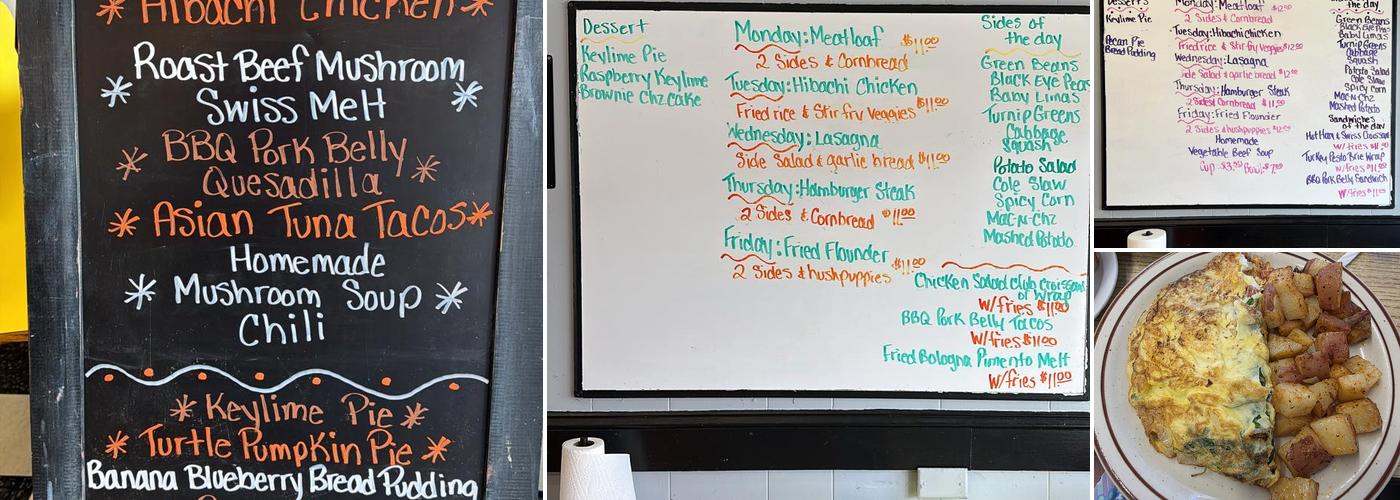 Hibachi Chicken
Roast Beef Mushroom
Swiss Melt
BBQ Pork Belly
Quesadilla
Asian Tuna Tacos
Homemade
Mushroom Soup
Chili
Keylime Pie
Turtle Pumpkin Pie
Banana Blueberry Bread Pudding
Dessert
Keylime Pie
Raspberry Keylime
Brownie Chz.cake
Monday: Meatloaf $11.00
2 Sides & Cornbread
Tuesday: Hibachi Chicken
Fried rice & Stir fry Veggies $11.00
Wednesday: Lasagna
Side Salad & garlic bread $11.00
Thursday: Hamburger Steak
2 Sides & Cornbread $11.00
Friday: Fried Flounder
2 Sides & hushpuppies $11.00
Sides of
the day
Green Beans
Black Eye Peas
Baby Limas
Turnip Greens
Cabbage
Squash
Potato Salad
Cole Slaw
Spicy Corn
Mac-N-Chz
Mashed Potato
Chicken Salad Club Croissant
or Wrap
W/fries $11.00
BBQ Pork Belly Tacos
W/fries $11.00
Fried Bologna Pimento Melt
W/fries $11.00
Desserts
Keylime Pie
Pecan Pie
Bread Pudding
Monday: Meatloaf $12.00
2 Sides & Cornbread
Tuesday: Hibachi chicken
Fried rice & Stir fry Veggies $12.00
Wednesday: Lasagna
Side Salad & garlic bread $12.00
Thursday: Hamburger Steak
2 Sides & Cornbread $11.00
Friday: Fried Flounder
2 Sides & hushpuppies $12.00
Homemade
Vegetable Beef Soup
Cup $3.50 Bowl
the day
Green Beans
Black Eye Peas
Baby Limas
Turnip Greens
Cabbage
Squash
Potato Salad
Cole Slaw
Spicy Corn
Mac-N-Chz
Mashed Potato
Sandwiches
of the day
Hot Ham & Swiss Croissant
W/fries
Turkey Pesto Brie Wrap
W/fries $11.00
BBQ Pork Belly Sandwich
W/fries $11.00